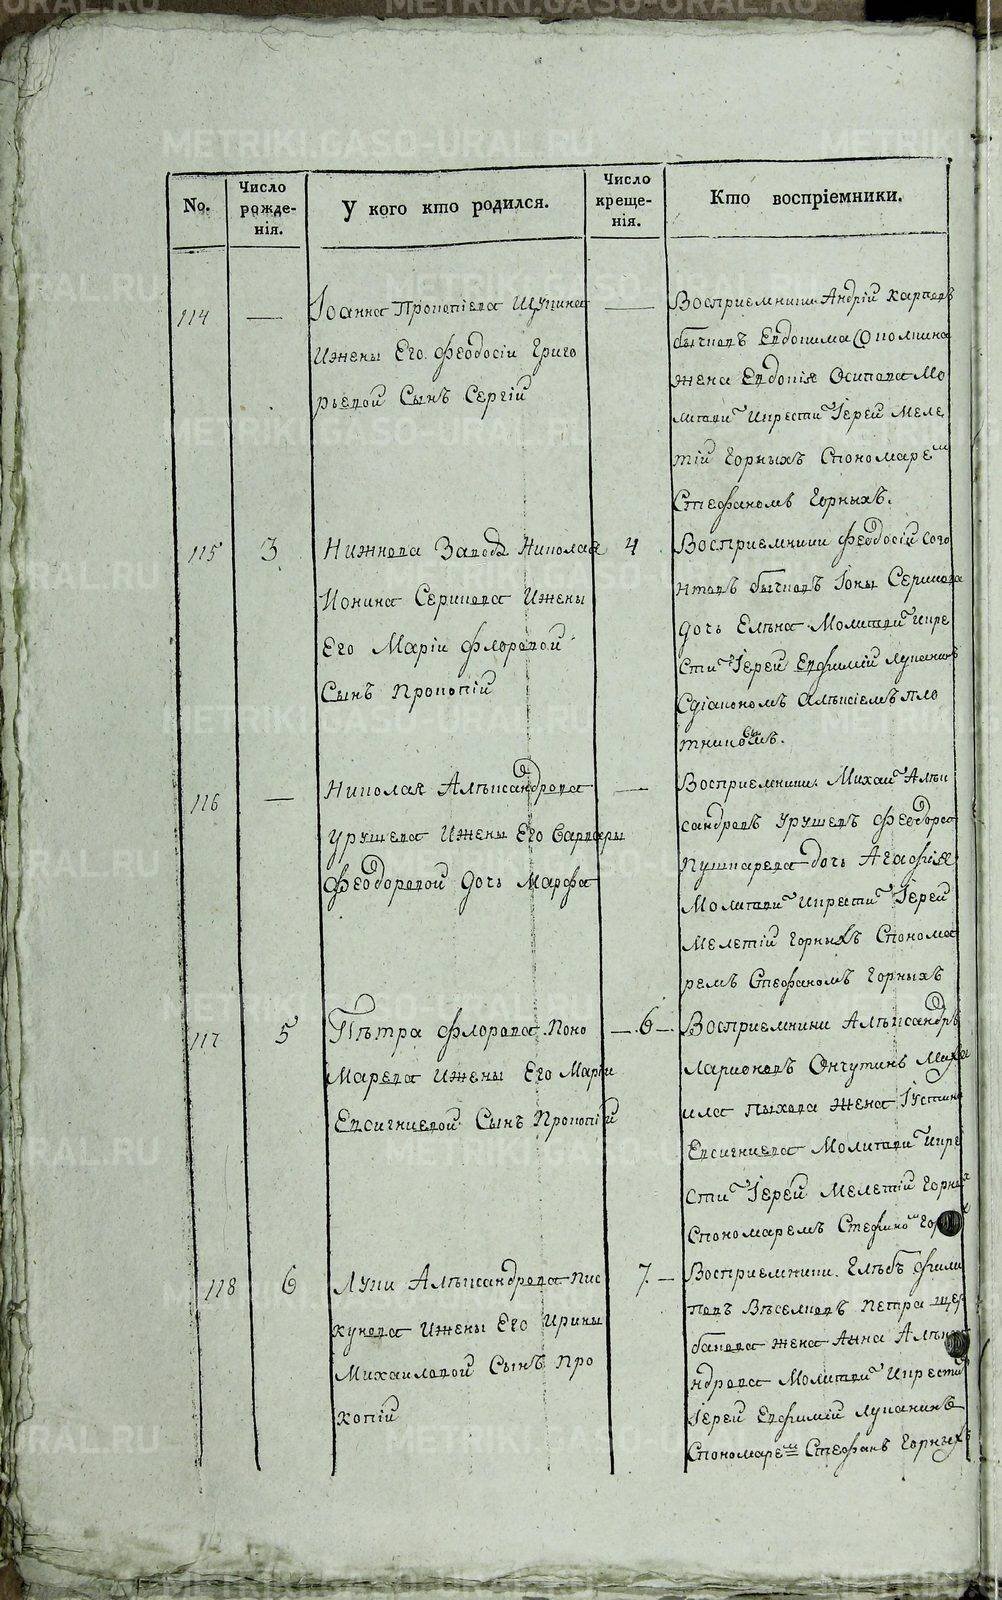 No.
Число рожде-нія.
У кого кто родился.
Число креще-нія.
Кто воспріемники.
114
—
Іоанна Прокопіева Щукина
Ижены Его Феодосіи Григо
рьевой Сынъ Сергій
—
Восприемники Андрій Карповъ
Бычковъ Евдокима
жена Евдокія Осипова Мо
литви Икрести Іерей Меле
тій Горныхъ Спономарем
Стефаномъ Горныхъ.
115
3
Нижнева Завода Николая
Ионина Серикова Ижены
Его Маріи Флоровой
Сынъ Прокопій
4
Восприемники Феодосій
Бычковъ Іоны Серикова
дочь Елѣна Молитви Икре
сти Іерей Евфимій Лукани
Сдіакономъ Алѣксіемъ Пло
тниковымъ.
116
—
Николая Алѣксандрова
Урушева Ижены Его Варвары
Феодоровой дочь Марфа
—
Восприемники Михаи Алѣк
сандровъ Урушевъ Феодора
Пушкарева дочь Агафія
Молитви Икрести Іерей
Мелетій Горныхъ Спонома
ремъ Стефаномъ Горныхъ
117
5
Пѣтра Флорова Поно
Марева Ижены Его Маріи
Евсигниевой Сынъ Прокопій
—6—
Восприемники Алѣксандръ
Ларионовъ Ончутинъ Миха
ила Пыхова жена Іустина
Евсигниева Молитви Икре
сти Іерей Мелетій Горных
Спономаремъ Стефаном Гор
118
6
Луки Алѣксандрова Пис
кунова Ижены Его Ирины
Михаиловой Сынъ Про
копій
7 —
Восприемники. Глѣбъ Фили
повъ Вѣселковъ Петра Щер
бакова жена Анна Алѣкса
ндрова Молитви Икрести
Іерей Евфимій Луканинъ
Спономарем Стефанъ Горныхъ
METRIKI.GASO-URAL.RU